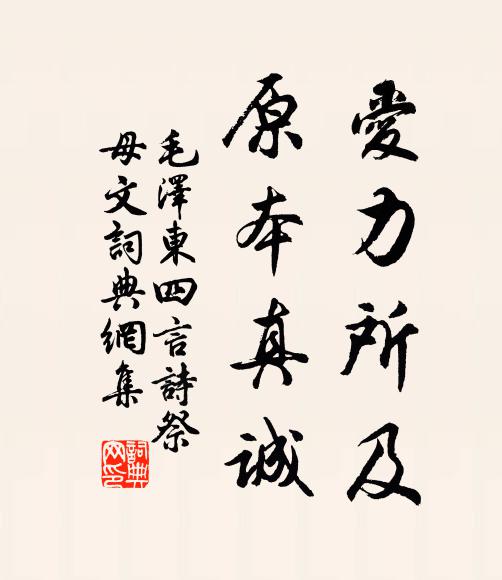 愛力所及
原本真誠
毛澤東四言詩祭
母文詞典網集
詞典
网印